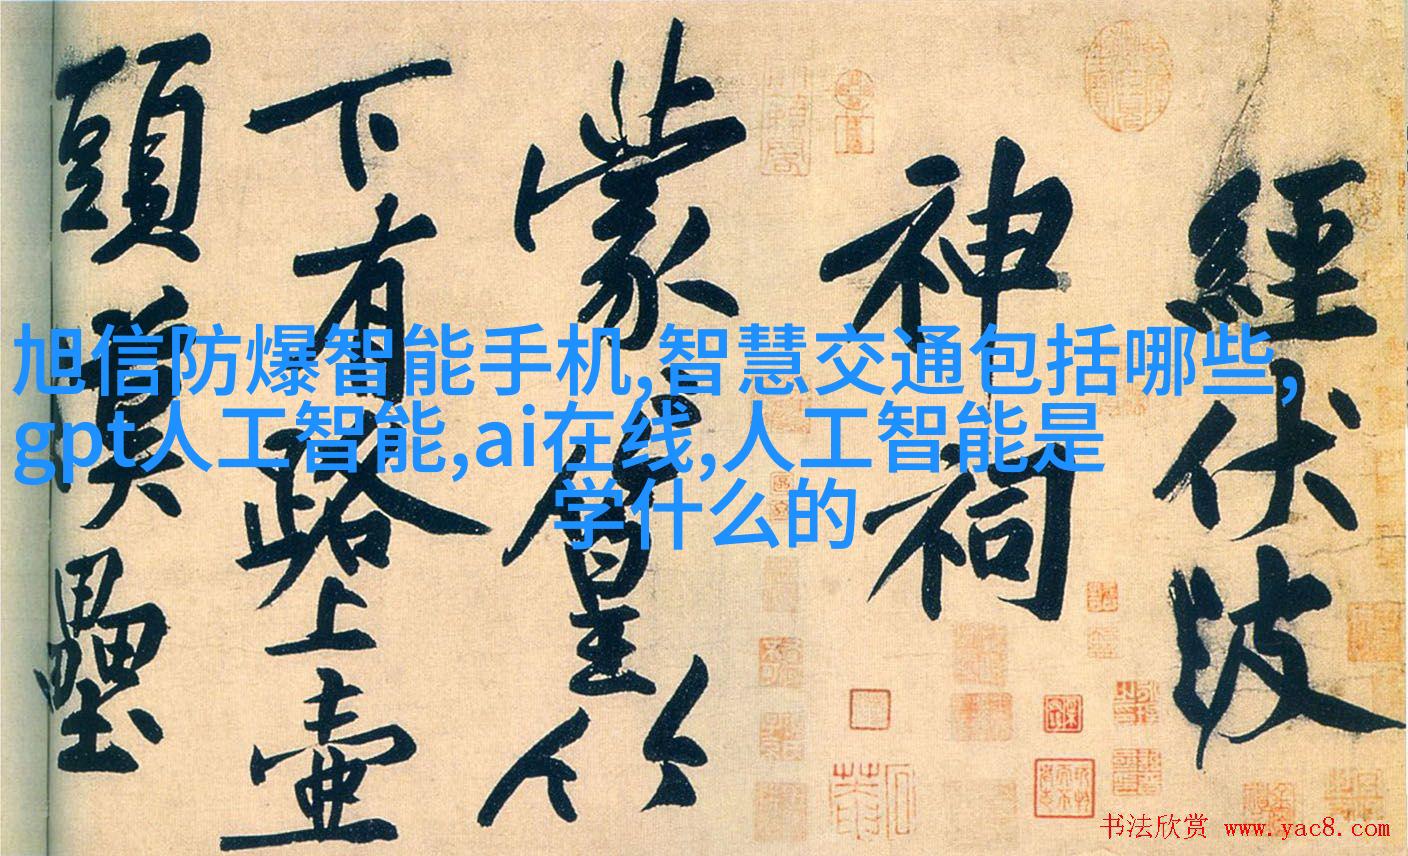 經伏波
神祠
蒙篁竹
下有路上壺
頭漢壘
旭信防爆智能手机,智慧交通包括哪些,
gpt人工智能,ai在线,人工智能是
学什么的
书法欣赏 www.yac8.com